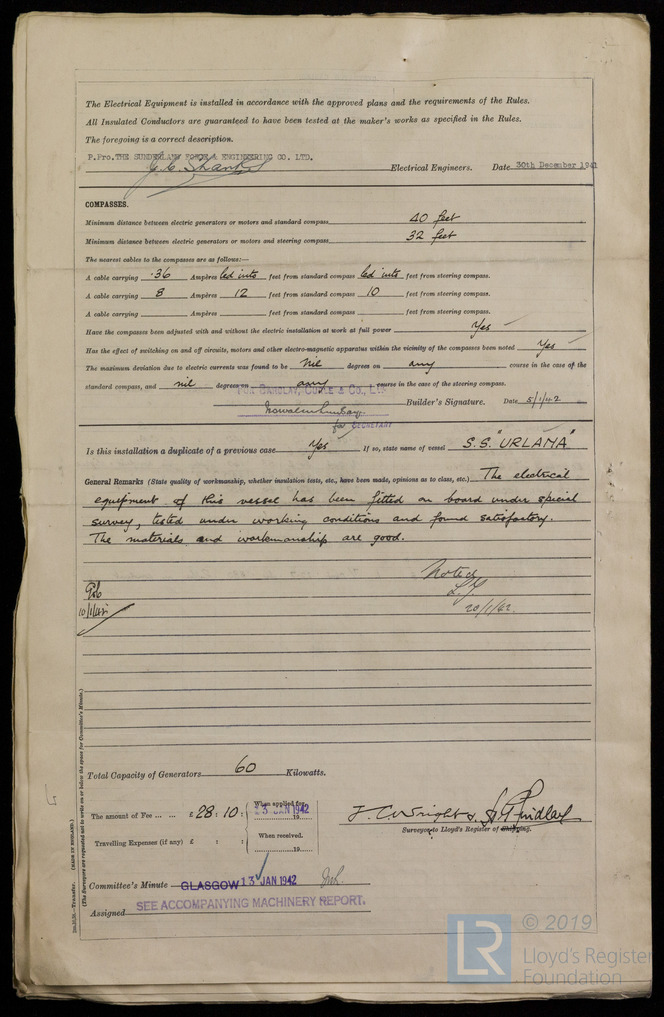 The Electrical Equipment is installed in accordance with the approved plans and the requirements of the Rules.
All Insulated Conductors are guaranteed to have been tested at the maker's works as specified in the Rules.
The foregoing is a correct description.
P.Pro.THE SUNDERLAND FORGE & ENGINEERING CO. LTD.
Electrical Engineers. Date 30th December 1941
COMPASSES.
Minimum distance between electric generators or motors and standard compass 40 feet
Minimum distance between electric generators or motors and steering compass 32 feet
The nearest cables to the compasses are as follows:—
A cable carrying .36 Ampères led into feet from standard compass led into feet from steering compass.
A cable carrying 8 Ampères 12 feet from standard compass 10 feet from steering compass.
A cable carrying Ampères feet from standard compass feet from steering compass.
Have the compasses been adjusted with and without the electric installation at work at full power Yes
Has the effect of switching on and off circuits, motors and other electro-magnetic apparatus within the vicinity of the compasses been noted Yes
The maximum deviation due to electric currents was found to be nil degrees on any course in the case of the
standard compass, and nil degrees on any course in the case of the steering compass.
FOR BARCLAY, CURLE & CO., LTD.
Builder's Signature. Date 5/1/42
for SECRETARY
Is this installation a duplicate of a previous case Yes If so, state name of vessel S.S. "URLANA"
General Remarks (State quality of workmanship, whether insulation tests, etc., have been made, opinions as to class, etc.) The electrical
equipment of this vessel has been fitted on board under special
survey, tested under working conditions and found satisfactory.
The materials and workmanship are good.
Noted
20/1/42.
10/1/42
Total Capacity of Generators 60 Kilowatts.
The amount of Fee ... ... £ 28 : 10 :
When applied for,
13 JAN 1942
19
Travelling Expenses (if any) £ : :
When received.
19
J. C. Wright & Findlay
Surveyor to Lloyd's Register of Shipping.
Committee's Minute GLASGOW 13 JAN 1942
Assigned SEE ACCOMPANYING MACHINERY REPORT.
(MADE IN ENGLAND.)
(The Surveyors are requested not to write on or below the space for Committee's Minute.)
LR
© 2019
Lloyd's Register
Foundation